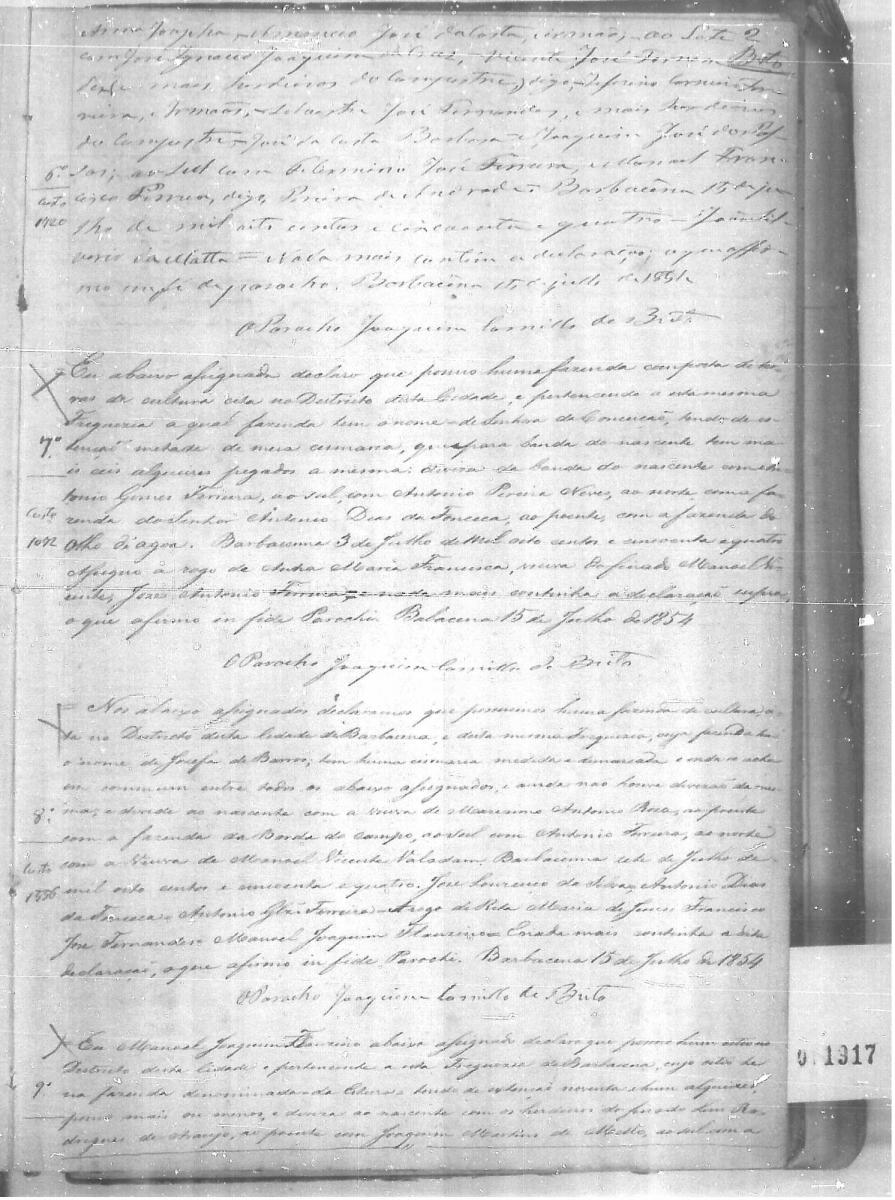 Anna Josepha, Amancio José da Costa, e irmãos, ao Leste 2
com José Ignacio Joaquim da Cruz, Vicente José Ferreira Brito
mais herdeiros do Campestre, digo, Carneiro
e Irmaõs, José Fernandes, e mais herdeiros
do Campestre José da Costa Barbosa e Joaquim José dos Pas-
6º sos; ao Sul com Felermino José Ferreira, e Manoel Fran-
Custo cisco Ferreira, digo, Pereira de Andrade Barbacena 15 de ju-
1920 lho de mil oito centos e cincoenta e quatro = João Sil-
verio da Matta = Nada mais contem a declaração; o que affir-
mo in fé de parocho. Barbacena 15 de julho de 1854
O Parocho Joaquim Camillo de Brito
Eu abaixo assignada declaro que possuo huma fazenda composta de ter-
ras de cultura cita no Destricto desta Cidade, e pertencendo a esta mesma
Freguezia a qual fazenda tem o nome de Senhora da Conceicaõ, tendo de ex-
7º tençaõ metade de meia cismaria, que para banda do nascente tem ma-
is seis alqueires pegados a mesma: deviza da banda do nascente com An-
tonio Gomes Ferreira, ao sul, com Antonio Pereira Neves, ao norte, com a fa-
Custo zenda do Senhor Antonio Dias da Fonceca, ao poente, com a fazenda do
1092 Olho d'agoa. Barbacena 3 de Julho de Mil oito centos e cincoenta e quatro
Assigno à rogo de Anna Maria Francisca, viuva do finado Manoel Vi-
cente, Joze Antonio Ferreira, e nada mais continha a declaraçaõ supra,
o que afirmo in fide Parochi. Balacena 15 de Julho de 1854
O Parocho Joaquim Camillo de Brito
Nos abaixo assignados declaramos que possuimos huma fazenda de cultura, ci-
ta no Destricto desta Cidade de Barbacena, e desta mesma Freguezia, cuja fazenda tem
o nome de Josefa de Barros; tem huma cismaria medida e demarcada e inda se acha
em commum entre todos os abaixo assignados, e ainda naõ houve divizaõ da mes-
8º ma; e divide ao nascente com a viuva de Maximo Antonio Roza, ao poente
com a fazenda da Borda do campo, ao sul com Antonio Ferreira, ao norte
Custo com a Viuva de Manoel Vicente Valadam. Barbacena sete de Julho de
1586 mil oito centos e cincoenta e quatro. Joze Lourenco da Silva = Antonio Dias
da Fonceca = Antonio Glz Ferreira = A rogo de Rita Maria de Jesus Francisco
Joze Fernandes = Manoel Joaquim Flauzino = E nada mais continha a dita
declaraçaõ, o que afirmo in fide Parochi. Barbacena 15 de Julho de 1854
O Parocho Joaquim Camillo de Brito
Eu Manoel Joaquim Flauzino abaixo assignado declaro que possuo hum citio no
Destricto desta Cidade e pertencente a esta Freguezia de Barbacena, cujo citio he
9º na fazenda denominada da tendo de extençaõ noventa e hum alqueires,
pouco mais ou menos, e deviza ao nascente com os herdeiros do finado Ro-
drigues de Araujo, ao poente com Joaquim Martins de Mello, ao sul com a
0.1917